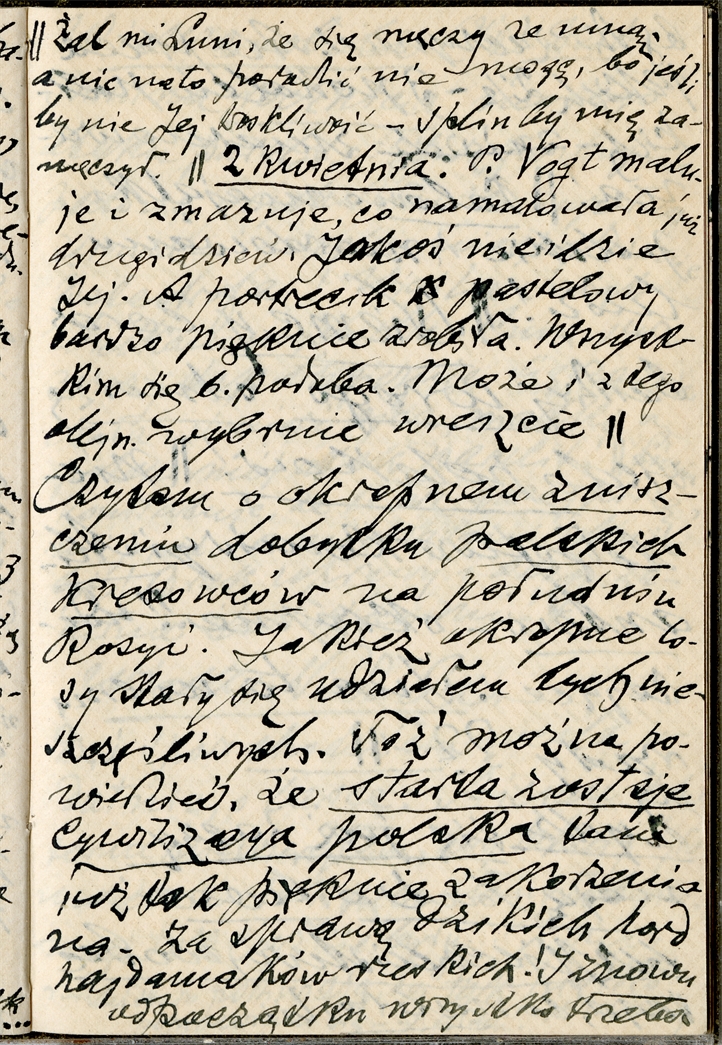 || Żal mi Luni, że się męczy ze mną,
a nic na to poradzić nie mogę, bo jeśli
by nie Jej troskliwość – splin by mię za-
męczył. || 2 kwietnia. P. Vogt malu-
je i zmazuje, co namalowała już
drugi dzień. Jakoś nie idzie
Jej. A portrecik pastelowy
bardzo pięknie zrobiła. Wszyst-
kim się b. podoba. Może i z tego
olejn. wybrnie wreszcie ||
Czytam o okropnem znisz-
czeniu dobytku polskich
kresowców na południu
Rosyi. Jakież okropne lo-
sy stały się udziałem tych nie-
szczęśliwych. Toż można po-
wiedzieć, że starta zostaje
cywilizacya polska tam
już tak pięknie zakorzenio
na – za sprawą dzikich hord
hajdamaków ruskich! I znowu
od początku wszystko trzeba